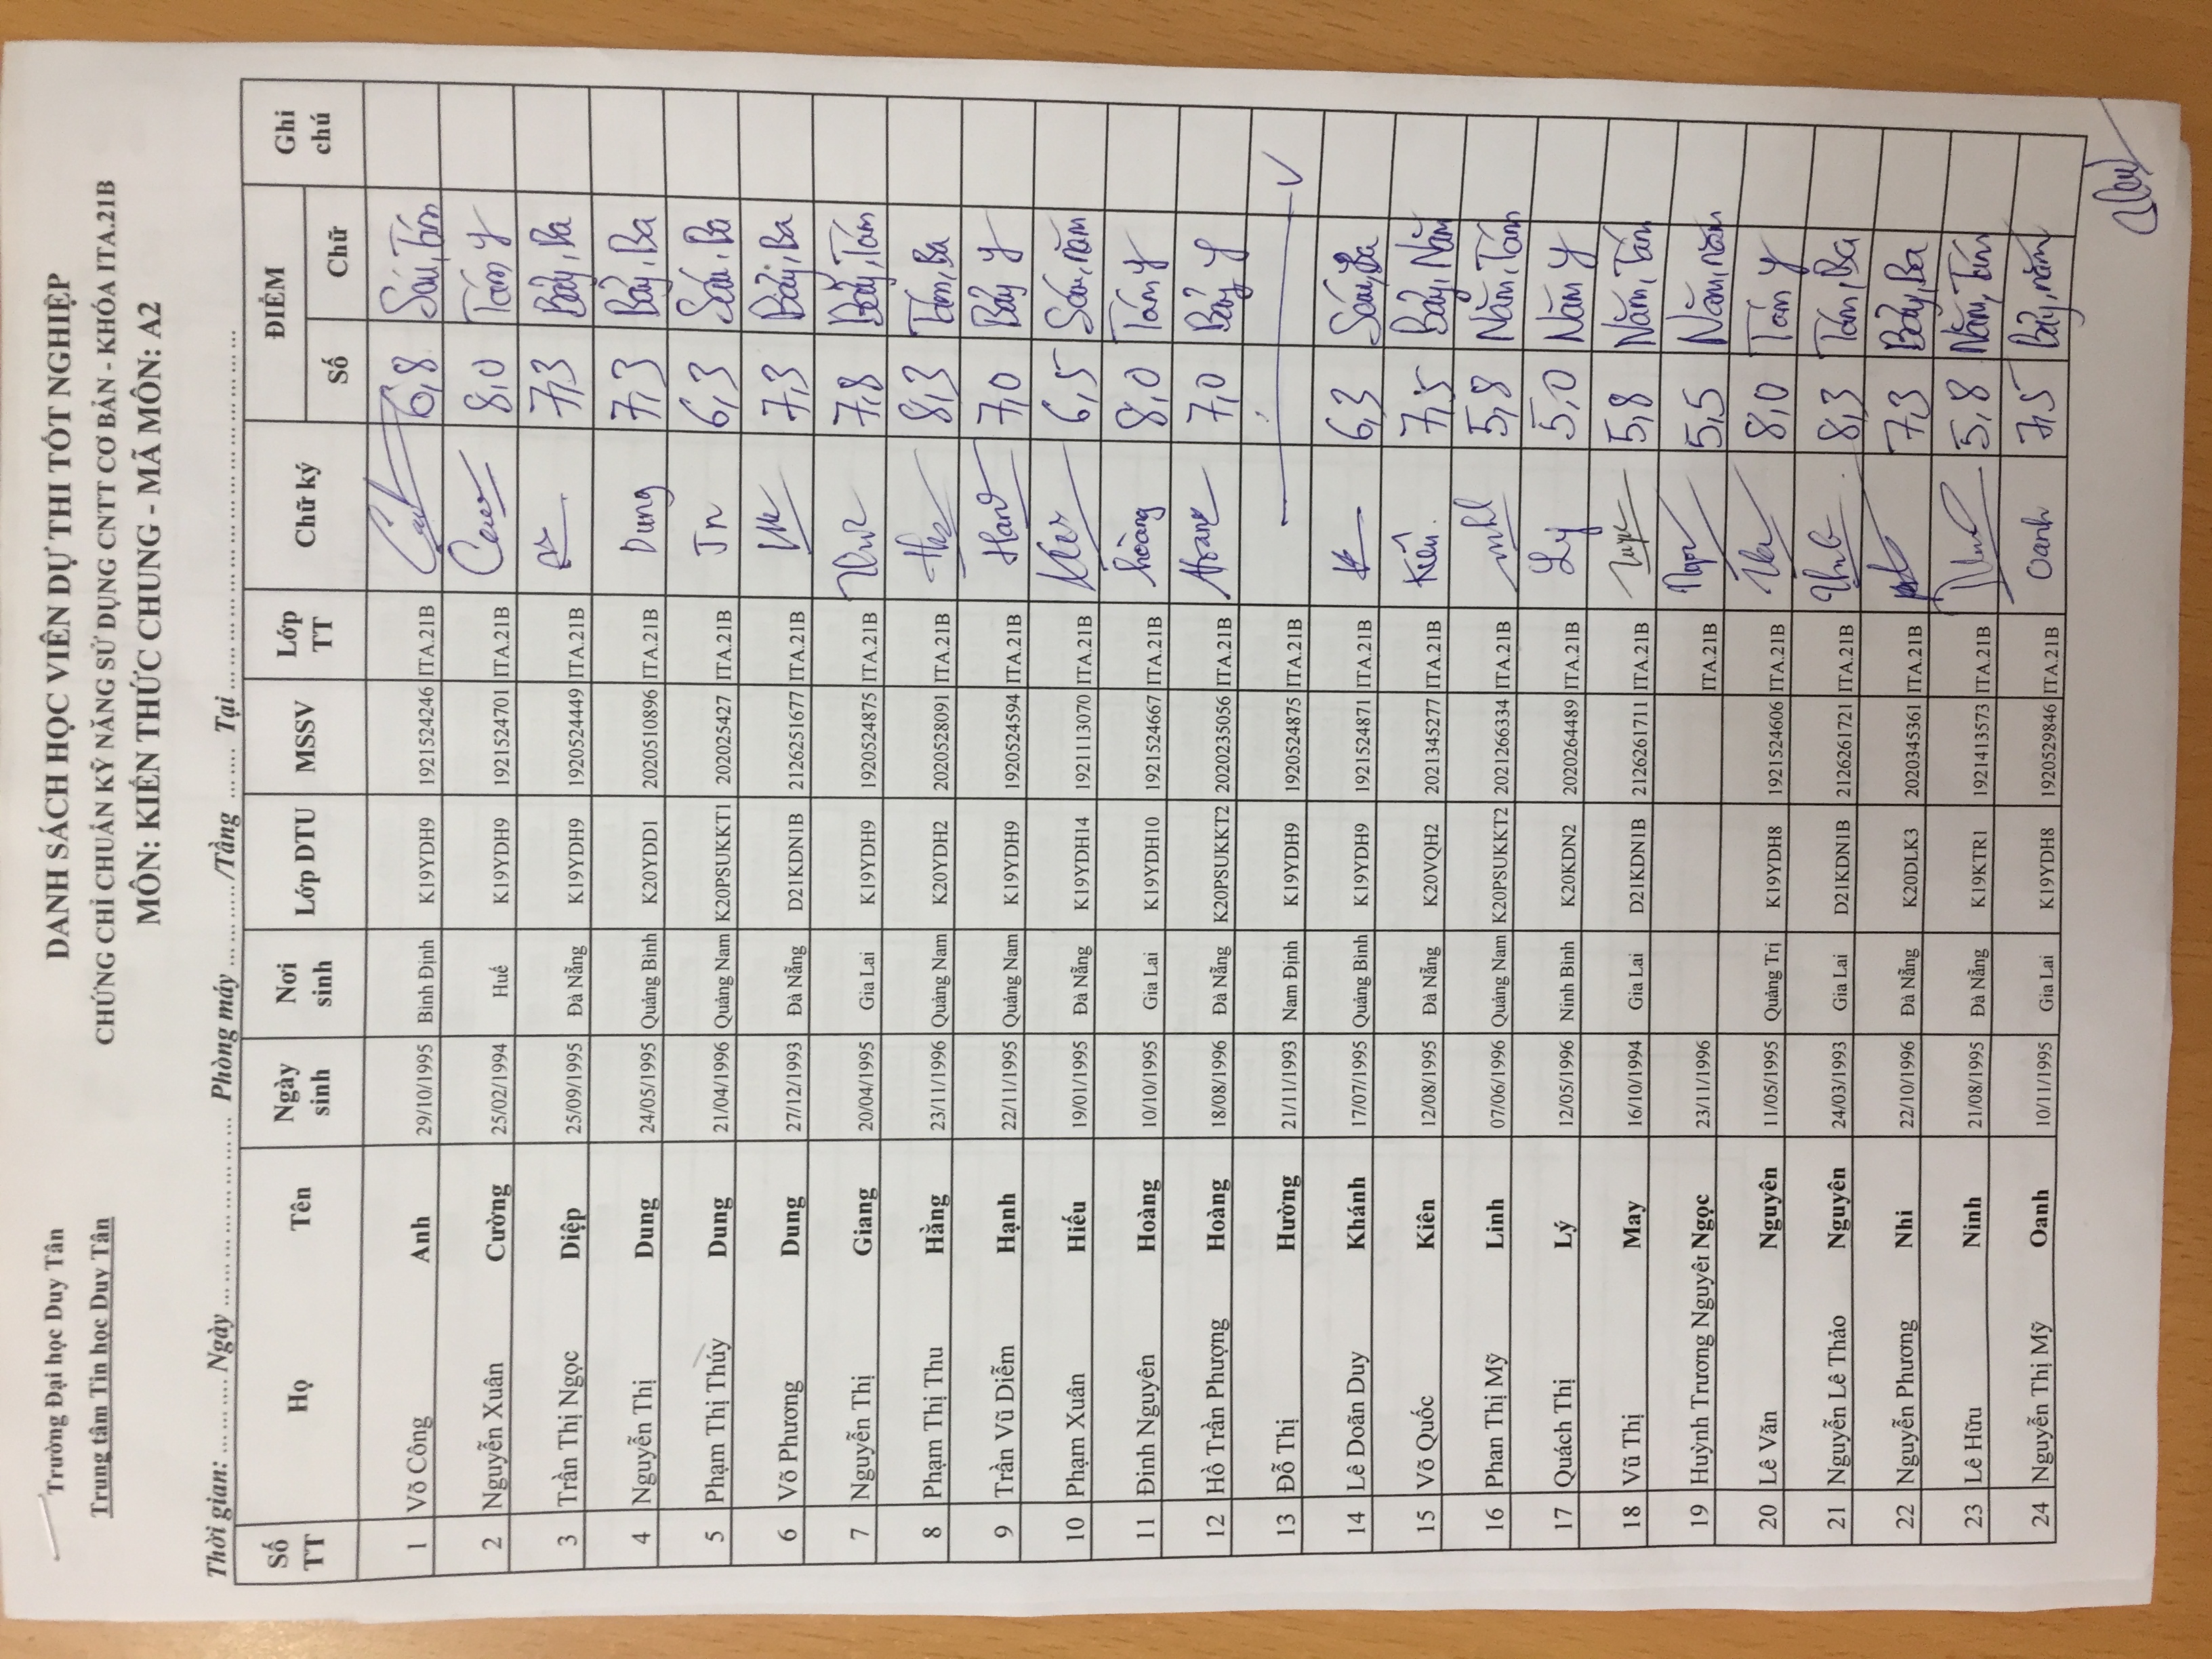 Trường Đại học Duy Tân
Trung tâm Tin học Duy Tân
DANH SÁCH HỌC VIÊN DỰ THI TỐT NGHIỆP
CHỨNG CHỈ CHUẨN KỸ NĂNG SỬ DỤNG CNTT CƠ BẢN - KHÓA ITA.21B
MÔN: KIẾN THỨC CHUNG - MÃ MÔN: A2
Thời gian: ... ... ... Ngày ... ... ... ... ... ... Phòng máy ... ... ... /Tầng ... ... Tại ... ... ... ... ... ... ... ... ... ...
Số TT Họ Tên Ngày sinh Nơi sinh Lớp DTU MSSV Lớp TT Chữ ký ĐIỂM Số Chữ Ghi chú
1 Võ Công Anh 29/10/1995 Bình Định K19YDH9 1921524246 ITA.21B 6,8 Sáu, Tám
2 Nguyễn Xuân Cường 25/02/1994 Huế K19YDH9 1921524701 ITA.21B 8,0 Tám y
3 Trần Thị Ngọc Diệp 25/09/1995 Đà Nẵng K19YDH9 1920524449 ITA.21B 7,3 Bảy, Ba
4 Nguyễn Thị Dung 24/05/1995 Quảng Bình K20YDD1 2020510896 ITA.21B Dung 7,3 Bảy, Ba
5 Phạm Thị Thúy Dung 21/04/1996 Quảng Nam K20PSUKKT1 202025427 ITA.21B 6,3 Sáu, Ba
6 Võ Phương Dung 27/12/1993 Đà Nẵng D21KDN1B 2126251677 ITA.21B 7,3 Bảy, Ba
7 Nguyễn Thị Giang 20/04/1995 Gia Lai K19YDH9 1920524875 ITA.21B 7,8 Bảy, Tám
8 Phạm Thị Thu Hằng 23/11/1996 Quảng Nam K20YDH2 2020528091 ITA.21B 8,3 Tám, Ba
9 Trần Vũ Diễm Hạnh 22/11/1995 Quảng Nam K19YDH9 1920524594 ITA.21B 7,0 Bảy y
10 Phạm Xuân Hiếu 19/01/1995 Đà Nẵng K19YDH14 1921113070 ITA.21B 6,5 Sáu, năm
11 Đinh Nguyên Hoàng 10/10/1995 Gia Lai K19YDH10 1921524667 ITA.21B hoàng 8,0 Tám y
12 Hồ Trần Phượng Hoàng 18/08/1996 Đà Nẵng K20PSUKKT2 2020235056 ITA.21B 7,0 Bảy y
13 Đỗ Thị Hường 21/11/1993 Nam Định K19YDH9 1920524875 ITA.21B V
14 Lê Doãn Duy Khánh 17/07/1995 Quảng Bình K19YDH9 1921524871 ITA.21B 6,3 Sáu, Ba
15 Võ Quốc Kiên 12/08/1995 Đà Nẵng K20VQH2 2021345277 ITA.21B Kiên 7,5 Bảy, Năm
16 Phan Thị Mỹ Linh 07/06/1996 Quảng Nam K20PSUKKT2 2021266334 ITA.21B 5,8 Năm, Tám
17 Quách Thị Lý 12/05/1996 Ninh Bình K20KDN2 2020264489 ITA.21B Lý 5,0 Năm y
18 Vũ Thị May 16/10/1994 Gia Lai D21KDN1B 2126261711 ITA.21B 5,8 Năm, Tám
19 Huỳnh Trương Nguyêt Ngọc 23/11/1996 ITA.21B Ngọc 5,5 Năm, năm
20 Lê Văn Nguyên 11/05/1995 Quảng Trị K19YDH8 1921524606 ITA.21B 8,0 Tám y
21 Nguyễn Lê Thảo Nguyên 24/03/1993 Gia Lai D21KDN1B 2126261721 ITA.21B 8,3 Tám, Ba
22 Nguyễn Phương Nhi 22/10/1996 Đà Nẵng K20DLK3 2020345361 ITA.21B 7,3 Bảy, Ba
23 Lê Hữu Ninh 21/08/1995 Đà Nẵng K19KTR1 1921413573 ITA.21B 5,8 Năm, Tám
24 Nguyễn Thị Mỹ Oanh 10/11/1995 Gia Lai K19YDH8 1920529846 ITA.21B Oanh 7,5 Bảy, năm